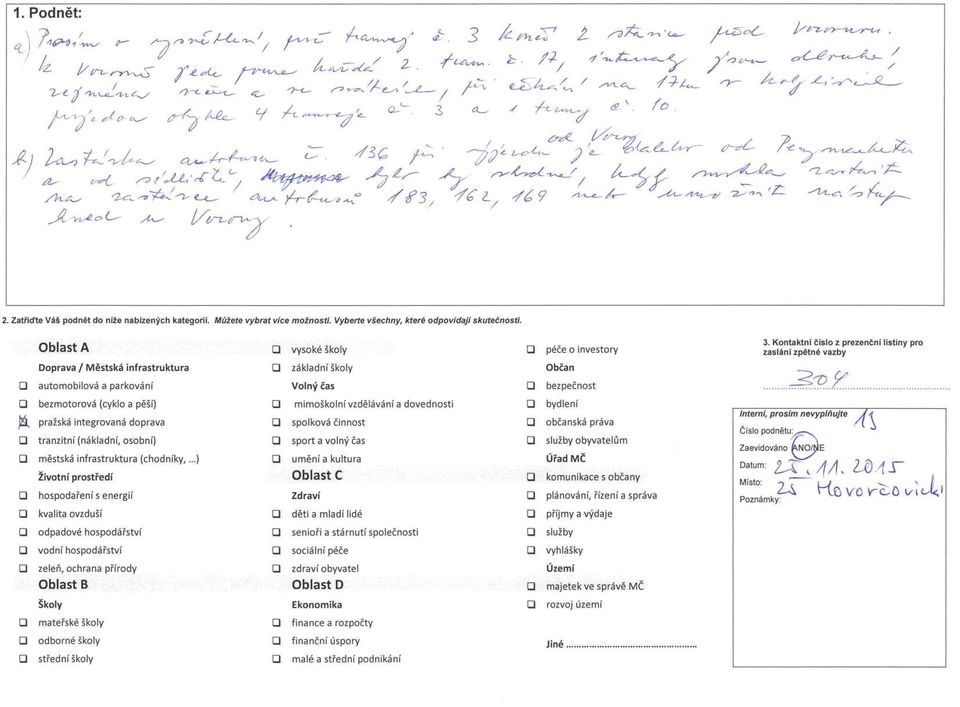 1. Podnět:
a) Prosím o vysvětlení, proč tramvaj č. 3 končí 2 stanice před Vozovnou.
K Vozovně jede pouze každá 2. tram. č. 17, intervaly jsou dlouhé,
zejména večer a ve svátek, při čekání na 17tku v Kobylisích
projedou obvykle 4 tramvaje č. 3 a 1 tramvaj č. 10.
b) Zastávka autobusu č. 136 při výjezdu je daleko od Penymarketu
od Vozovny
a od sídliště, bylo by vhodné, kdyby mohla zastavit
na zastávce autobusů 183, 162, 169 nebo umožnit nástup
hned u Vozovny.
2. Zatřiďte Váš podnět do níže nabízených kategorií. Můžete vybrat více možností. Vyberte všechny, které odpovídají skutečnosti.
Oblast A
Doprava / Městská infrastruktura
automobilová a parkování
bezmotorová (cyklo a pěší)
pražská integrovaná doprava
tranzitní (nákladní, osobní)
městská infrastruktura (chodníky, ...)
Životní prostředí
hospodaření s energií
kvalita ovzduší
odpadové hospodářství
vodní hospodářství
zeleň, ochrana přírody
Oblast B
Školy
mateřské školy
odborné školy
střední školy
vysoké školy
základní školy
Volný čas
mimoškolní vzdělávání a dovednosti
spolková činnost
sport a volný čas
umění a kultura
Oblast C
Zdraví
děti a mladí lidé
senioři a stárnutí společnosti
sociální péče
zdraví obyvatel
Oblast D
Ekonomika
finance a rozpočty
finanční úspory
malé a střední podnikání
péče o investory
Občan
bezpečnost
bydlení
občanská práva
služby obyvatelům
Úřad MČ
komunikace s občany
plánování, řízení a správa
příjmy a výdaje
služby
vyhlášky
Území
majetek ve správě MČ
rozvoj území
Jiné ................................................
3. Kontaktní číslo z prezenční listiny pro
zaslání zpětné vazby
304
Interní, prosím nevyplňujte
Číslo podnětu: 13
Zaevidováno ANO/NE
Datum: 25.11.2015
Místo: ZŠ Hovorčovická
Poznámky: